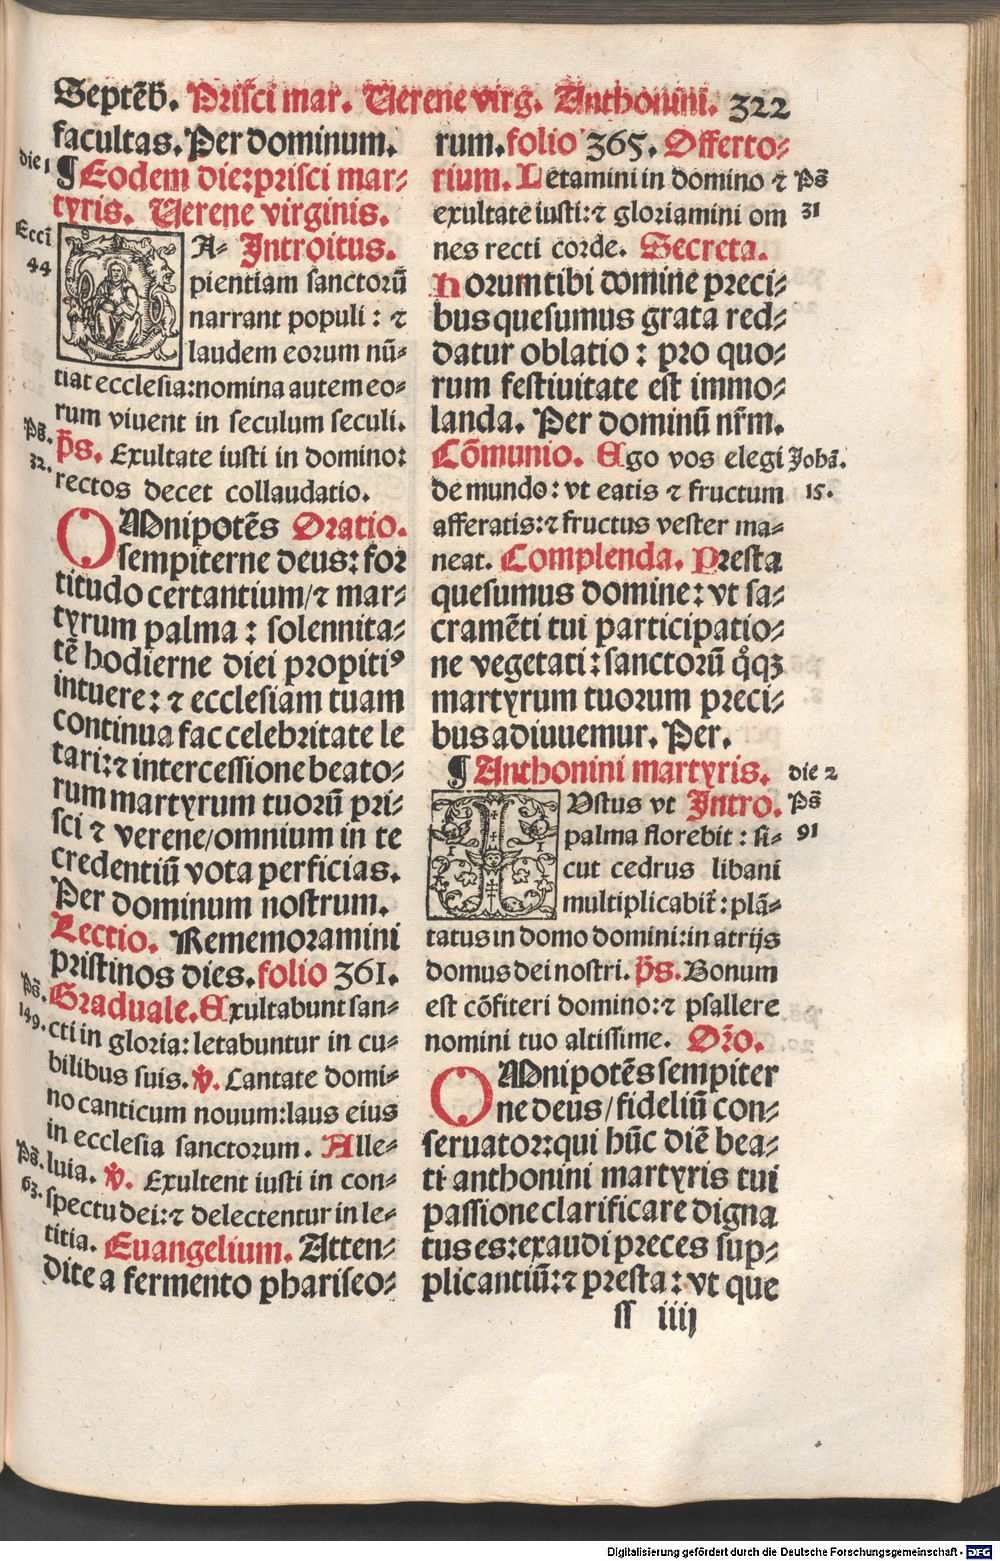 Septēb. Prisci mar. Uerene virg. Anthonini. 322
facultas. Per dominum.
die 1
¶ Eodem die: prisci mar⸗
tyris. Uerene virginis.
Ecci
44
A⸗ Introitus.
pientiam sanctorū
narrant populi : ⁊
laudem eorum nū⸗
tiat ecclesia: nomina autem eo⸗
rum viuent in seculum seculi.
Ps̄.
32.
p̄s. Exultate iusti in domino:
rectos decet collaudatio.
OMnipotēs Oratio.
sempiterne deus: for
titudo certantium/⁊ mar⸗
tyrum palma : solennita⸗
tē hodierne diei propitiꝰ
intuere: ⁊ ecclesiam tuam
continua fac celebritate le
tari: ⁊ intercessione beato⸗
rum martyrum tuorū pri⸗
sci ⁊ verene/omnium in te
credentiū vota perficias.
Per dominum nostrum.
Lectio. Rememoramini
pristinos dies. folio 361.
Ps̄.
149.
Graduale. Exultabunt san⸗
cti in gloria: letabuntur in cu⸗
bilibus suis. ℣. Cantate domi⸗
no canticum nouum: laus eius
in ecclesia sanctorum. Alle⸗
Ps̄.
63.
luia. ℣. Exultent iusti in con⸗
spectu dei: ⁊ delectentur in le⸗
titia. Euangelium. Atten⸗
dite a fermento phariseo⸗
rum. folio 365. Offerto⸗
rium. Letamini in domino ⁊
Ps̄
31
exultate iusti: ⁊ gloriamini om
nes recti corde. Secreta.
Horum tibi domine preci⸗
bus quesumus grata red⸗
datur oblatio : pro quo⸗
rum festiuitate est immo⸗
landa. Per dominū nr̄m.
Cōmunio. Ego vos elegi
Johā.
15.
de mundo: vt eatis ⁊ fructum
afferatis: ⁊ fructus vester ma⸗
neat. Complenda. Presta
quesumus domine: vt sa⸗
cramēti tui participatio⸗
ne vegetati: sanctorū qͦꝗȝ
martyrum tuorum preci⸗
bus adiuuemur. Per.
¶ Anthonini martyris.
die 2
Vstus vt Intro.
Ps̄
91
palma florebit : si⸗
cut cedrus libani
multiplicabit̄: plā⸗
tatus in domo domini: in atrijs
domus dei nostri. p̄s. Bonum
est cōfiteri domino: ⁊ psallere
nomini tuo altissime. Or̄o.
OMnipotēs sempiter
ne deus/fideliū con⸗
seruator: qui hūc diē bea⸗
ti anthonini martyris tui
passione clarificare digna
tus es: exaudi preces sup⸗
plicantiū: ⁊ presta : vt que
ſſ iiij
Digitalisierung gefördert durch die Deutsche Forschungsgemeinschaft - DFG